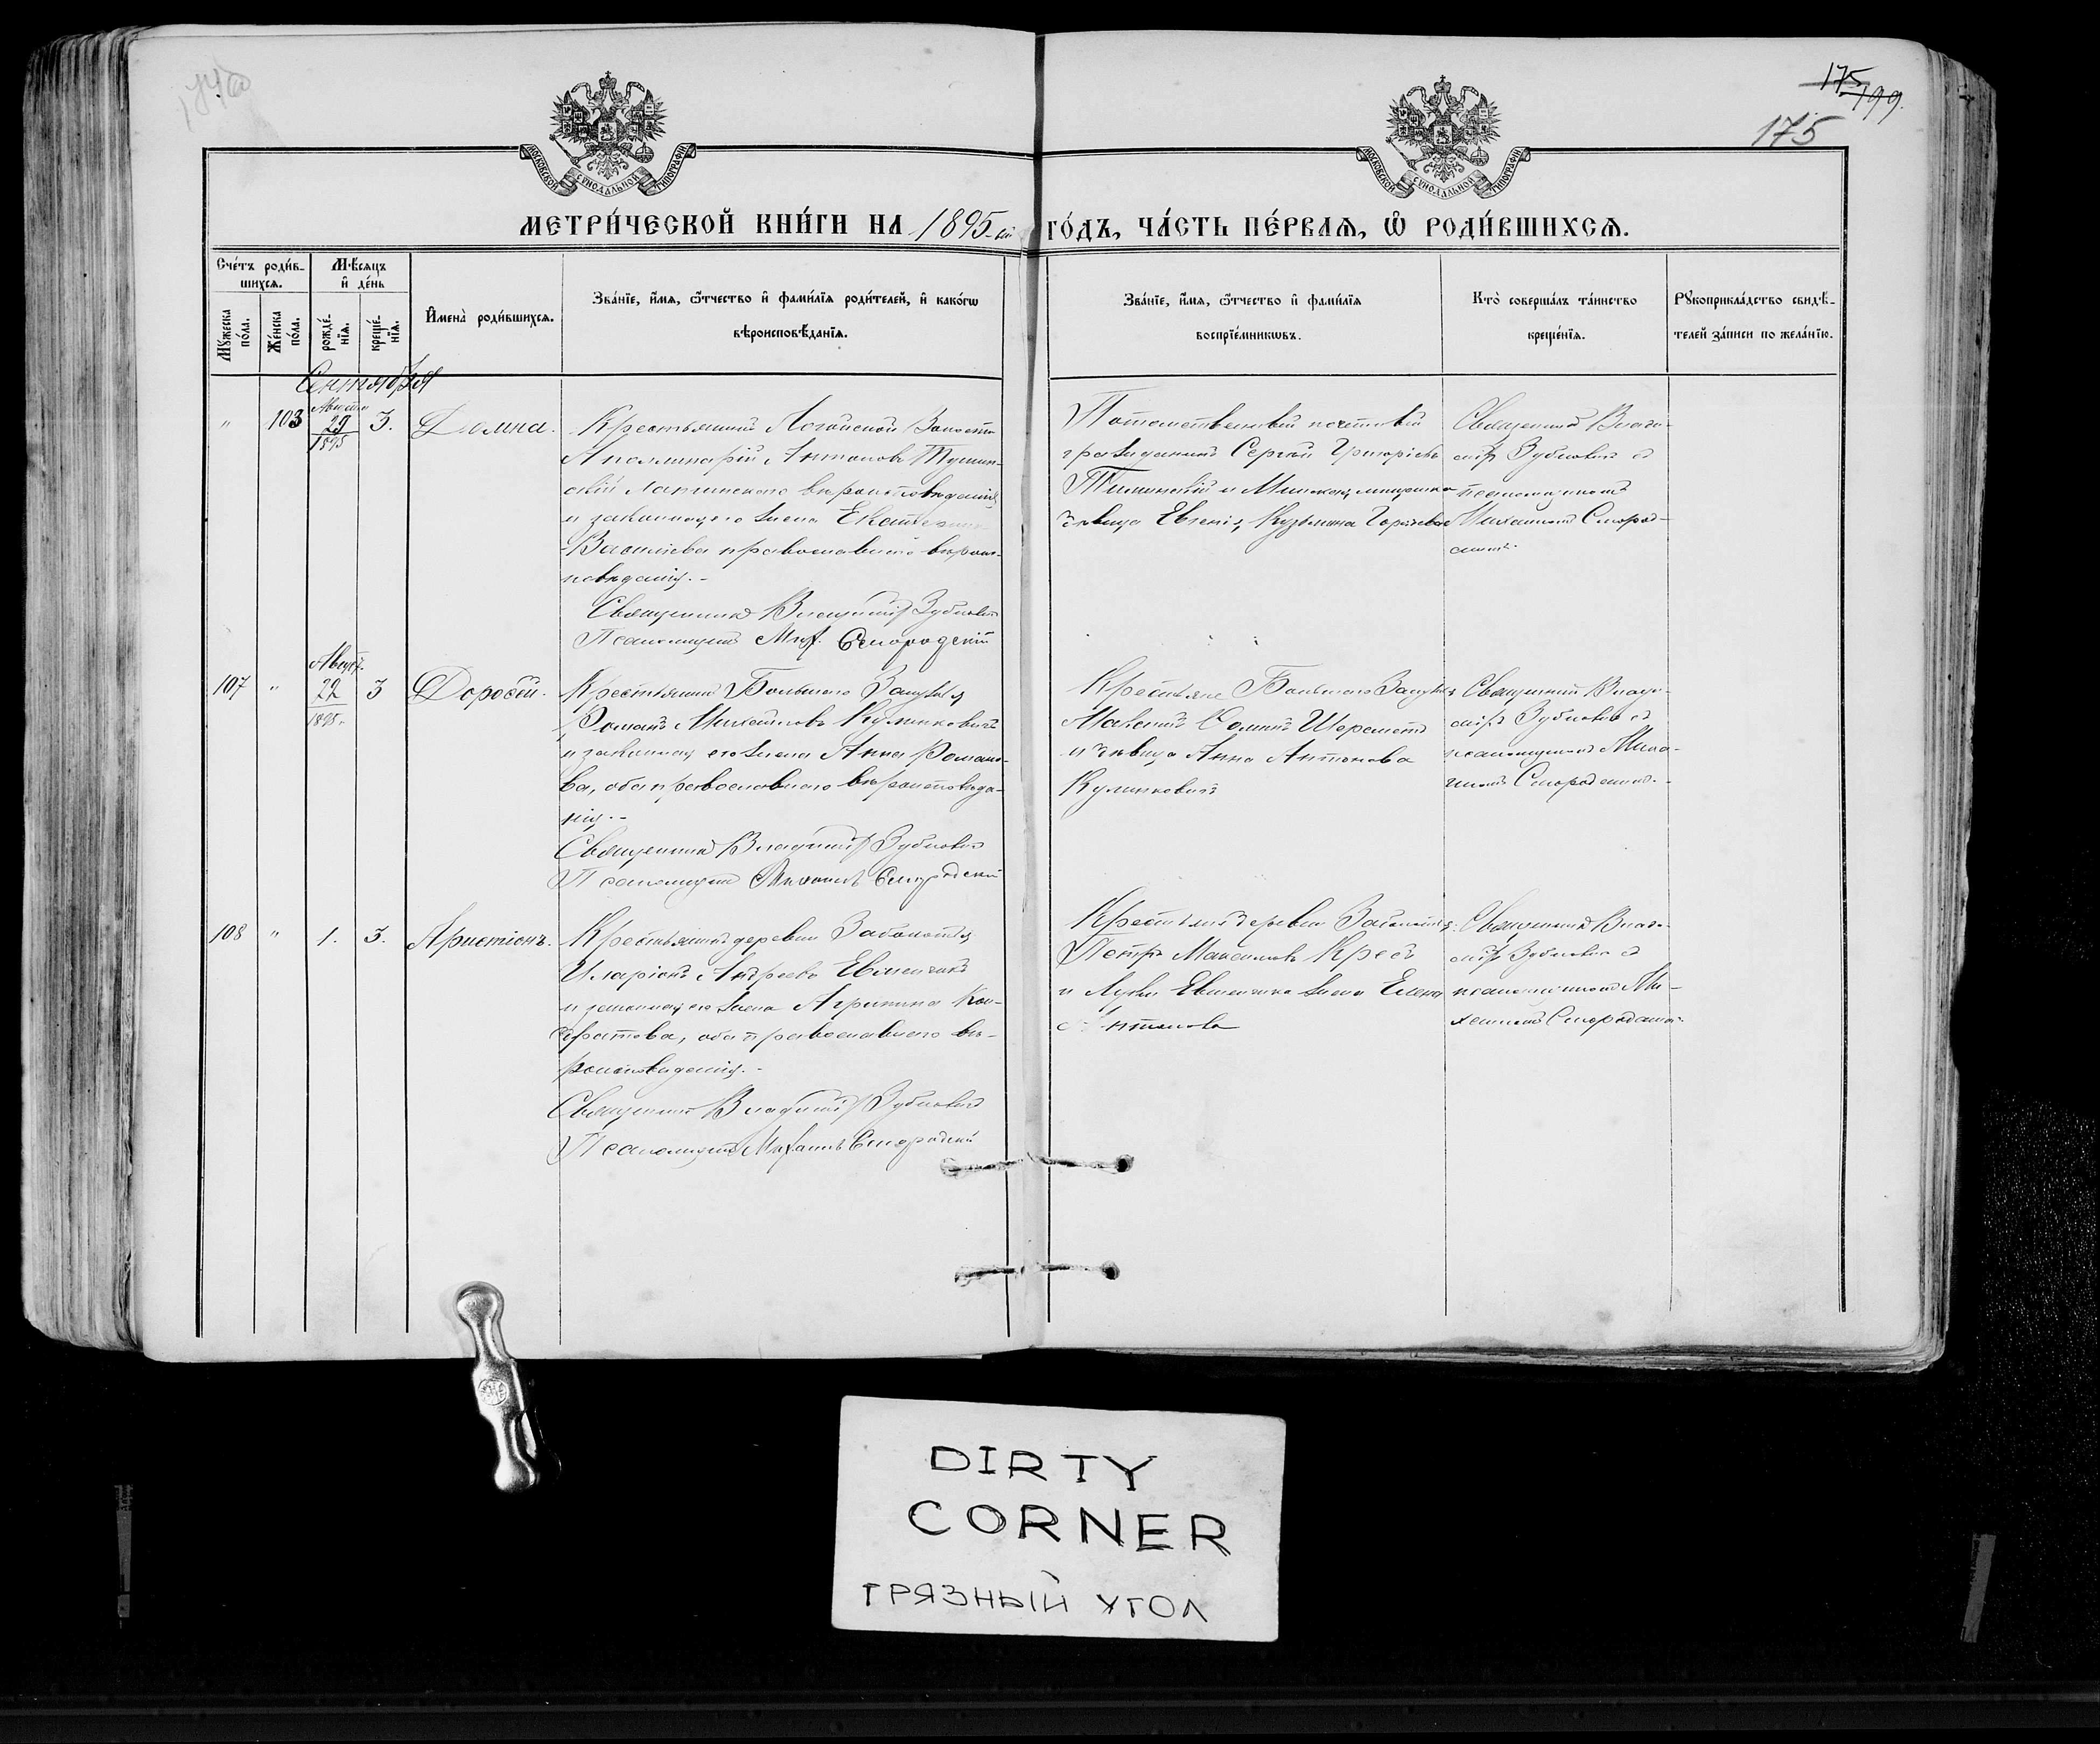 175
199.
175
МОСКОВСКОЙ СѴНОДАЛЬНОЙ ТИПОГРАФІИ
МОСКОВСКОЙ СѴНОДАЛЬНОЙ ТИПОГРАФІИ
МЕТРИ́ЧЕСКОЙ КНИ́ГИ НА 1895-ый ГО́ДЪ, ЧА́СТЬ ПЕ́РВАѦ, Ѡ҆ РОДИ́ВШИХСѦ.
Сче́тъ роди́в-
шихсѧ.
Мѣ́сѧцъ
и҆ де́нь
Мꙋ́жеска по́ла.
Же́нска по́ла.
рожде́-
нїѧ.
креще́-
нїѧ.
И҆мена̀ роди́вшихсѧ.
Зва́нїе, и҆́мѧ, ѻ҆́тчество и҆ фами́лїѧ роди́телей, и҆ како́гѡ
вѣроисповѣ́данїѧ.
Зва́нїе, и҆́мѧ, ѻ҆́тчество и҆ фами́лїѧ
воспрїе́мникѡвъ.
Кто̀ соверша́лъ та́инство
креще́нїѧ.
Рꙋкоприкла́дство свидѣ́-
телей за́писи по жела́нїю.
Сентября
" 103 Августа 29 1895 3. Домна.
Крестьянинъ Логойской Волости
Аполлинарій Антоновъ
латинскаго вѣроисповѣданія
и законная его жена Екатерина
Васильева православнаго вѣроис-
повѣданія.-
Священникъ Владиміръ Зубковичъ
Псаломщикъ Мих. Смородскій
Потомственный почетный
гражданинъ Сергѣй Григорьевъ
и Минская мѣщанка
дѣвица Евгенія Кузьмина
Священникъ Влади-
міръ Зубковичъ съ
псаломщикомъ
Михаиломъ Смород-
скимъ.
107 " Август. 22 1895 г. 3 Дороѳей.
Крестьянинъ Большого
Романъ Михайловъ Куликовичъ
и законная его жена Анна Романо-
ва, оба православнаго вѣроисповѣда-
нія.-
Священникъ Владиміръ Зубковичъ
Псаломщикъ Михаилъ Смородскій
Крестьяне Большого
Шереметъ
и дѣвица Анна Антонова
Куликовичъ
Священникъ Влади-
міръ Зубковичъ съ
псаломщикомъ Миха-
иломъ Смородскимъ.-
108 " 1. 3. Аристіонъ.
Крестьянинъ деревни Заболотья
Иларіонъ Андреевъ Евменчикъ
и законная его жена Агрипина Кон-
дратова, оба православнаго вѣ-
роисповѣданія.-
Священникъ Владиміръ Зубковичъ
Псаломщикъ Михаилъ Смородскій
Крестьянинъ деревни Заболотья
Петръ Максимовъ Кресъ
и Луки Евменчика жена Елена
Антонова
Священникъ Влади-
міръ Зубковичъ съ
псаломщикомъ Ми-
хаиломъ Смородскимъ.
DIRTY
CORNER
ГРЯЗНЫЙ УГОЛ